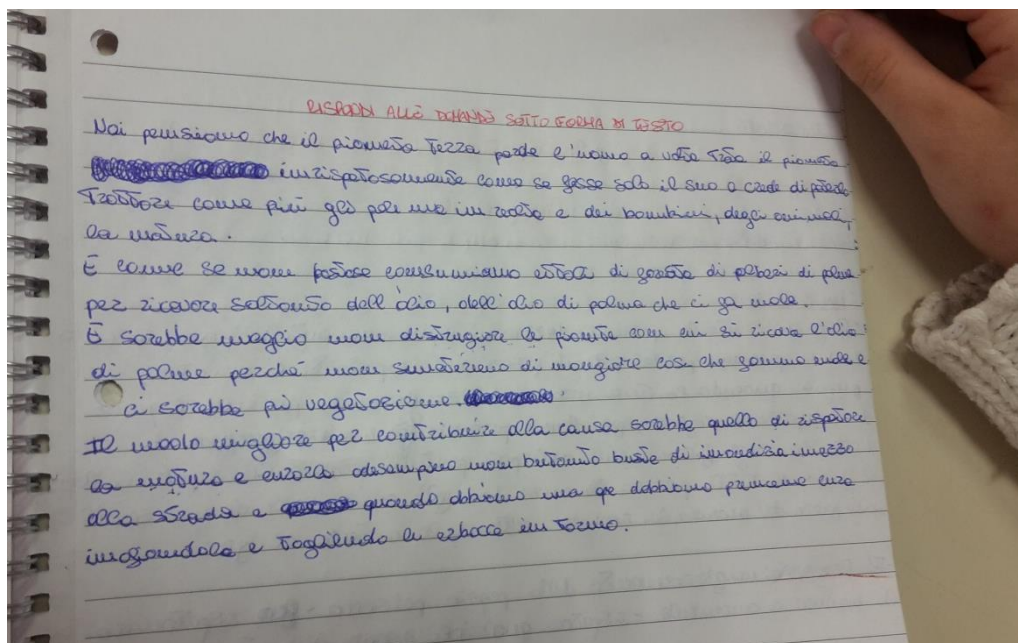 RISPONDI ALLE DOMANDE SOTTO FORMA DI TESTO
Noi pensiamo che il pianeta Terra perde l'uomo a volte il pianeta
inrispetosamente come se fosse solo il suo o crede di poterlo
come più ma in realtà e dei bambini, degli animali,
la natura.
È come se non consumiamo di foreste di di palma
per ricavare soltanto dell'olio, dell'olio di palma che ci fa male.
E sarebbe meglio non distrugiere le piante con cui si ricava l'olio
di palma perché non di mangiare cose che fanno male e
ci sarebbe più vegetazione.
Il modo migliore per contribuire alla causa sarebbe quello di rispetare
la natura e curarla adesempino non butando buste di imondizia inmezzo
alla strada e quando abbiamo una dobbiamo cura
inafiandola e togliendo le erbacce in torno.